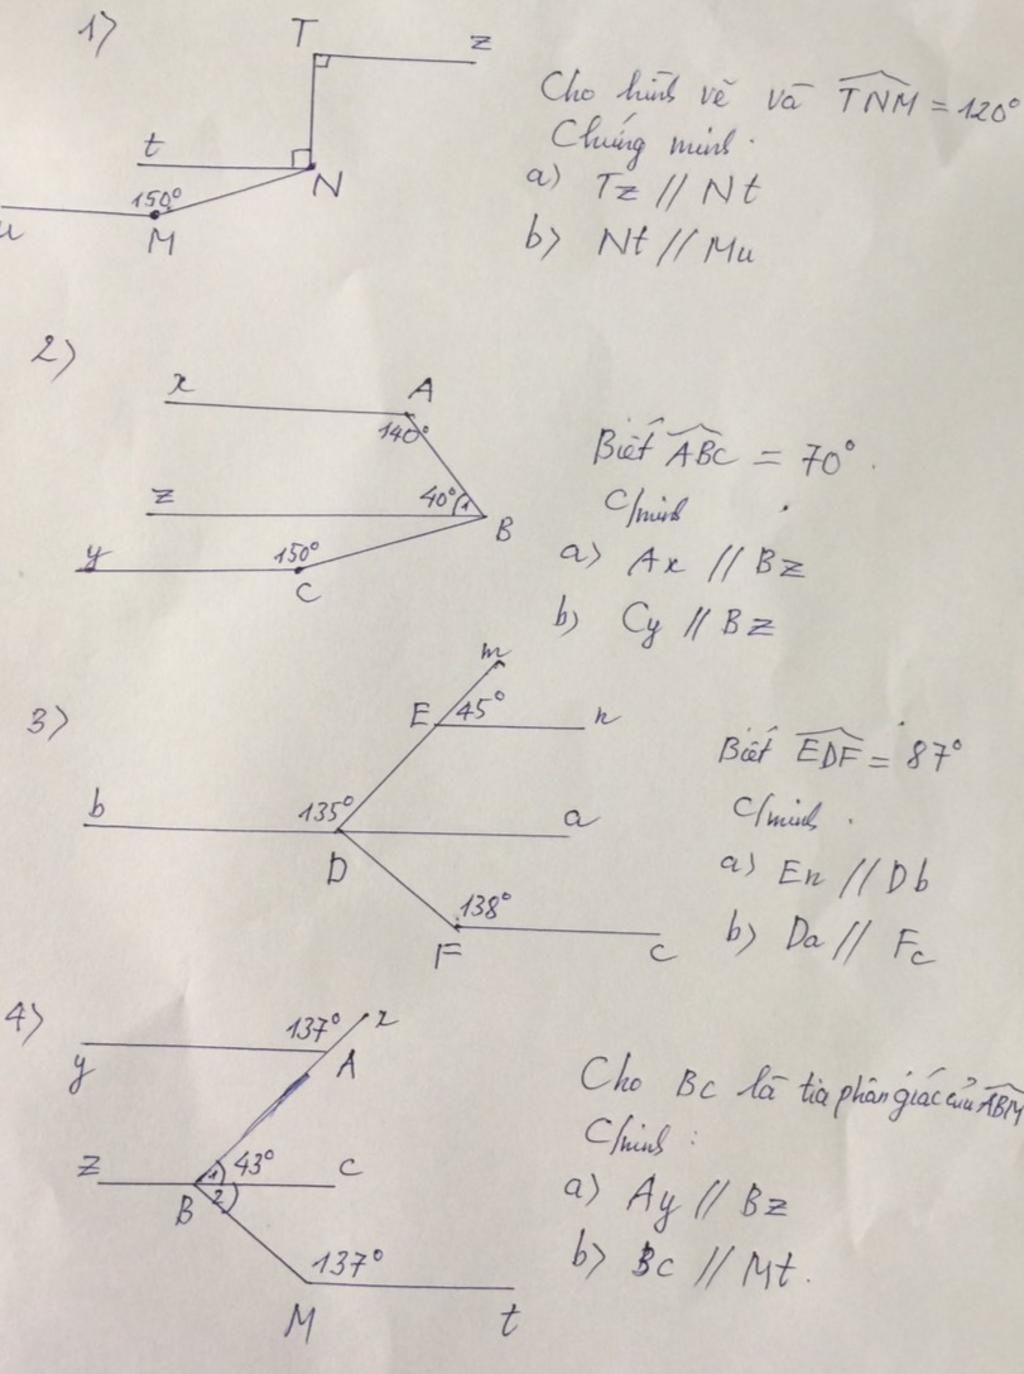 1)
T
z
Cho hình vẽ và TNM = 120°
Chứng minh.
t
N
a) Tz // Nt
150°
u
M
b) Nt // Mu
2)
x
A
140°
Biết ABC = 70°.
z
40°
1
B
C/minh
y
150°
C
a) Ax // Bz
b) Cy // Bz
3)
m
E
45°
n
Biết EDF = 87°
b
135°
a
C/minh.
D
a) En // Db
138°
F
c
b) Da // Fc
4)
137°
x
y
A
Cho Bc là tia phân giác của ABM
C/minh:
z
1
43°
c
B
2
a) Ay // Bz
137°
b) Bc // Mt.
M
t